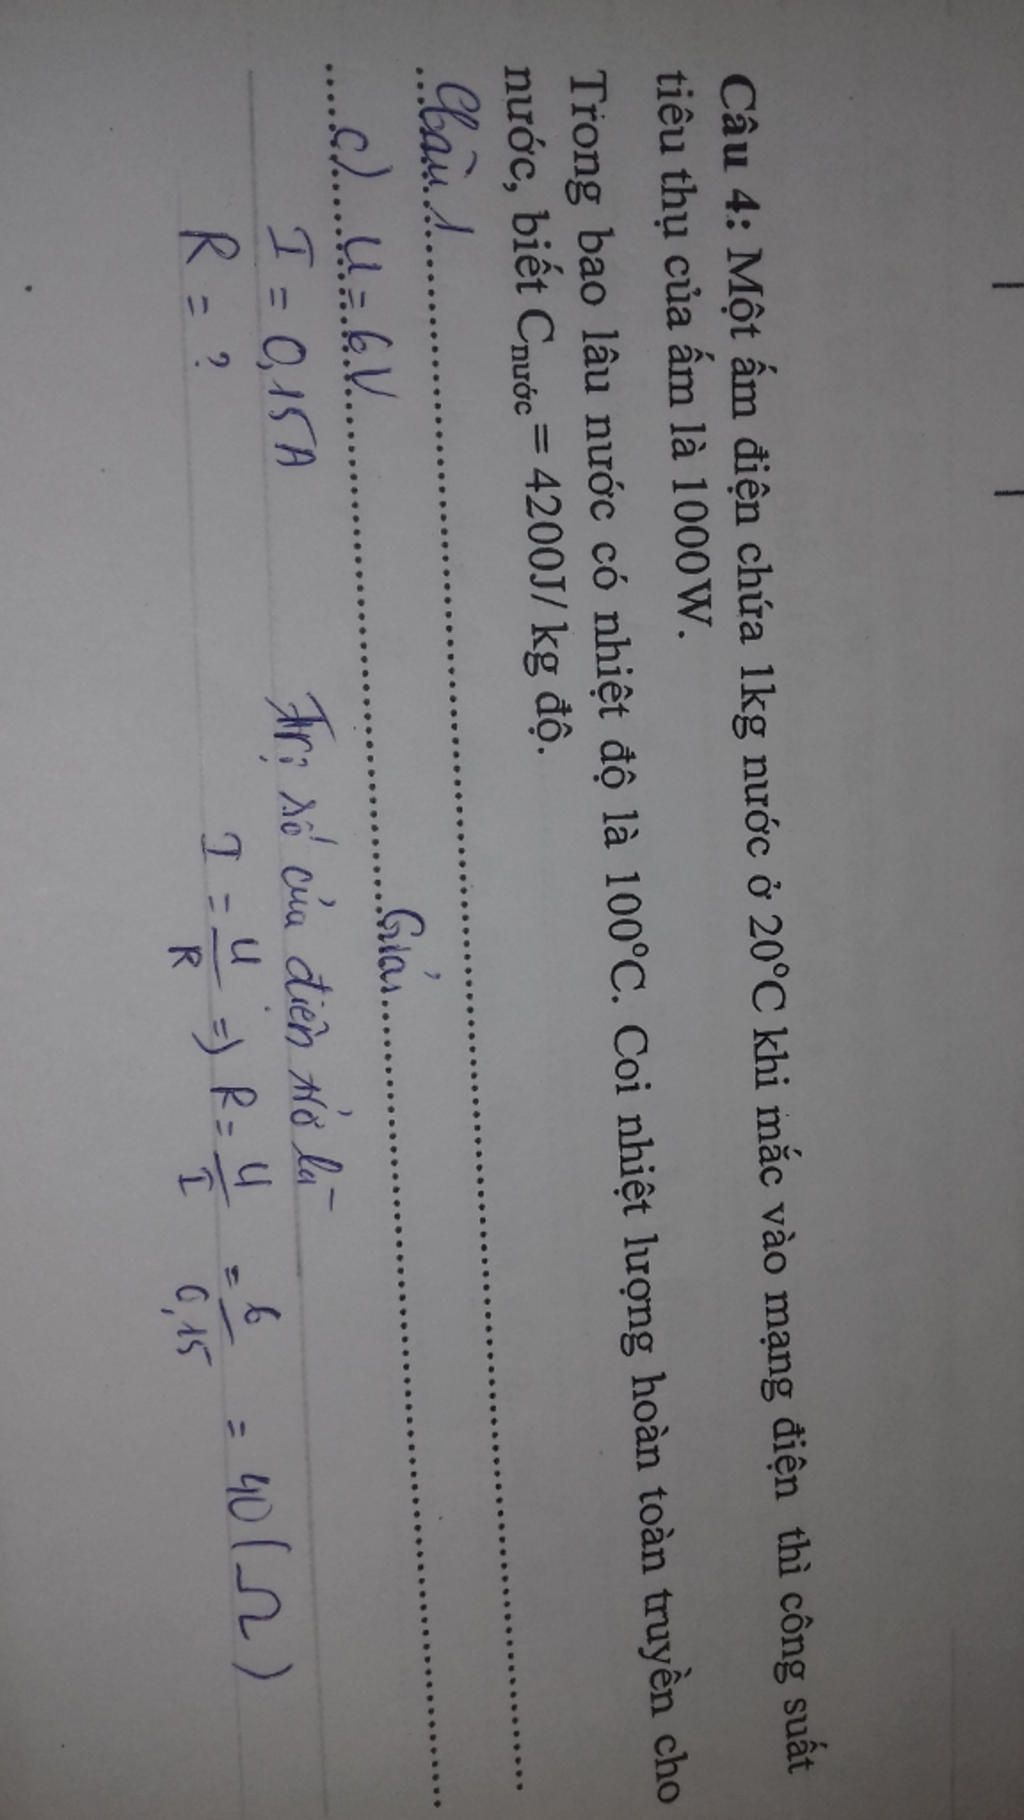 Câu 4: Một ấm điện chứa 1kg nước ở 20°C khi mắc vào mạng điện thì công suất
tiêu thụ của ấm là 1000W.
Trong bao lâu nước có nhiệt độ là 100°C. Coi nhiệt lượng hoàn toàn truyền cho
nước, biết Cnước = 4200J/ kg độ.
Câu 1
Giải
c) U = 6V
I = 0,15A
Trị số của điện trở là
R = ?
I = U/R => R = U/I = 6/0,15 = 40 (Ω)